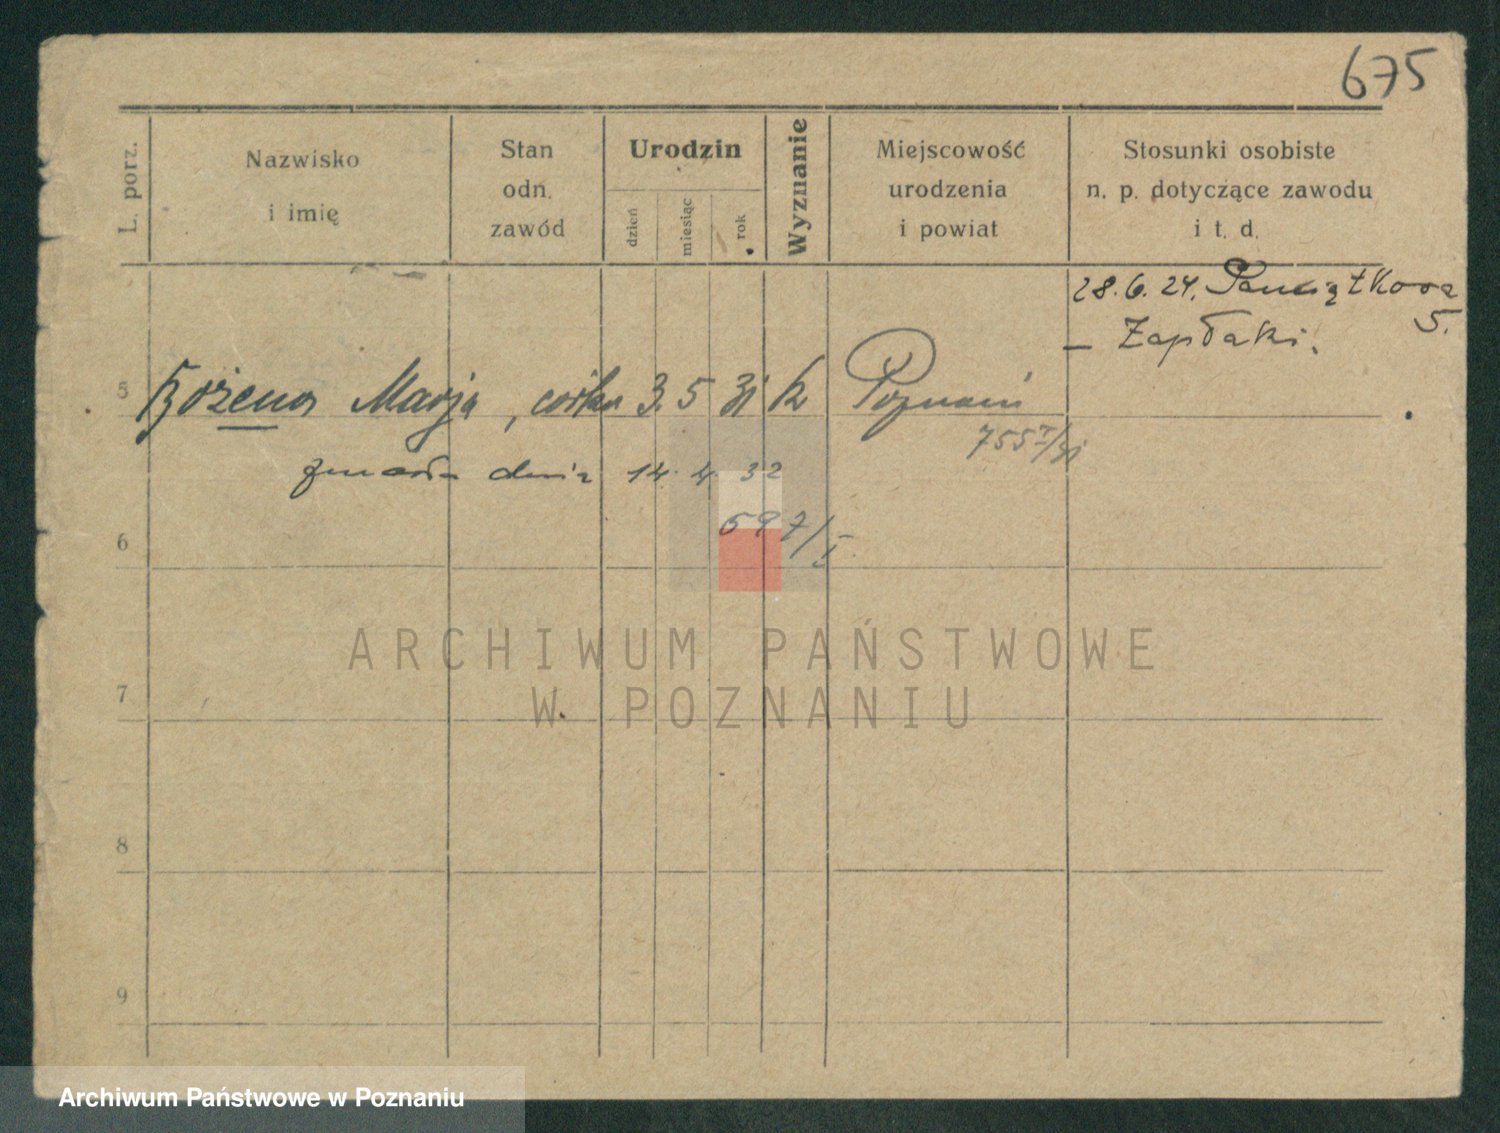 675
L. porz.
Nazwisko
i imię
Stan
odn.
zawód
Urodzin
dzień
miesiąc
rok
Wyznanie
Miejscowość
urodzenia
i powiat
Stosunki osobiste
n. p. dotyczące zawodu
i t. d.
28.6.24. Pamiątkowa
5.
– Zapłaki.
5 Bożena Marja, córka 3. 5 31 k Poznań
755 I/31
zmarła dnia 14. 4. 32
6
597/I
ARCHIWUM PAŃSTWOWE
7
W POZNANIU
8
9
Archiwum Państwowe w Poznaniu